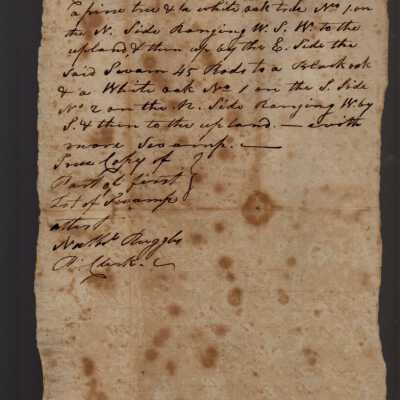 a pine tree & a white oak tree No 1. on
the N. Side Ranging W. S. W. to the
upland, & then up by the E. Side the
Said Swam 45 Rods to a Black oak
& a White oak No 1 on the S. Side
No 2 on the N. Side Ranging W. by
S. & then to the upland. — with
more Swamp. —
True Copy of
Part of first
Lot of Swamp
attest
Nathl Ruggles
Clerk.